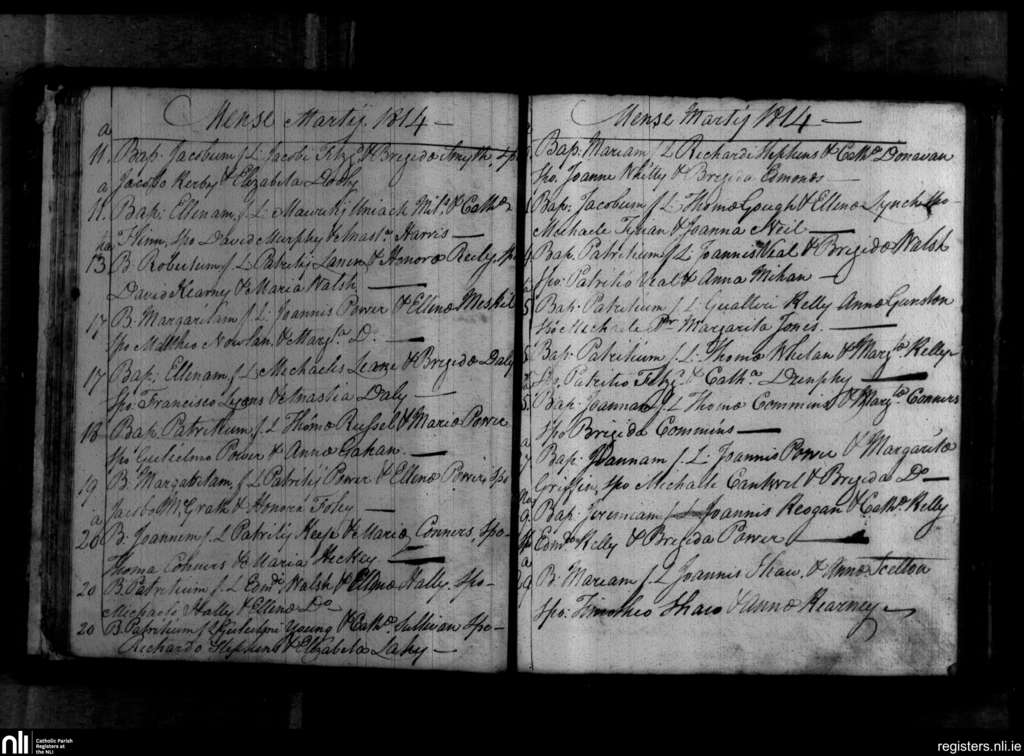 Mense Martij 1814 —
a
11. Bap: Jacobum f L: Jacobi Fitzgd & Brigidæ Smyth Spo
a Jacobo Kerby & Elizabeta Dooly
11. Bap: Ellenam, f L: Mauritij Uniack Milr. & Cathæ
Flinn, Spo David Murphy & Anasta. Harris —
13 B. Robertum f L: Patritij Lanen & Honoræ Reily, Spo
David Kearny & Maria Walsh —
17 B. Margaritam f L: Joannis Power & Ellenæ Meskil
Spo Mattheo Nowlan, & Margta D. —
17 Bap: Ellenam, f L: Michaelis & Brigidæ Daly
Spo: Francisco Lyons & Anastia Daly —
18 Bap. Patritium, f L Thomæ Russel & Mariæ Power
Spo Gulielmo Power & Anna Gahan. —
19 B. Margaritam, f L Patritij Power & Ellenæ Power, Spo
a Jacobo McGrath & Honora Foley —
20 B. Joannem f L Patritij Keefe & Mariæ Conners, Spo-
Thoma Conners & Maria Hickey —
20 B. Patritium f L Edmdi Walsh & Ellenæ Hally. Spo-
Michaele Hally & Ellena Do
20 B. Patritium f L Gulielmi Young & Cathæ Sullivan Spo-
Richardo Stephens & Elizabeta Lahy —
Mense Martij 1814 —
Bap: Mariam f L Richardi Stephens & Cathæ Donavan
Spo. Joanne Whilly & Brigida Edmonds —
Bap: Jacobum f L: Thomæ Gough & Ellenæ Lynch Spo-
Michaele & Joanna Neil —
Bap. Patritium f L: Joannis Veal & Brigidæ Walsh
Spo: Patritio Veal & Anna Mihan —
Bap: Patritium f L: Gualteri Kelly Annæ Gunston
Spo Michaele Pr Margarita Jones. —
Bap: Patritium f L: Thomæ Whelan & Margtæ Kelly
Spo. Patritio Fitzgd & Catha. Dunphy —
Bap. Joannam f L Thomæ Commins & Margtæ Conners
Spo Brigida Commins —
Bap: Joannam f L: Joannis Power & Margaritæ
Griffin, Spo Michaele Cantwel & Brigida Do —
Bap: Jeremiam Joannis Reogan & Cathæ Kelly
Edmdo Kelly & Brigida Power —
29 B. Mariam f L Joannis Shaw, & Annæ Scelton
Spo: Timotheo Shaw & Anna Kearney
nli
Catholic Parish
Registers at
the NLI
registers.nli.ie